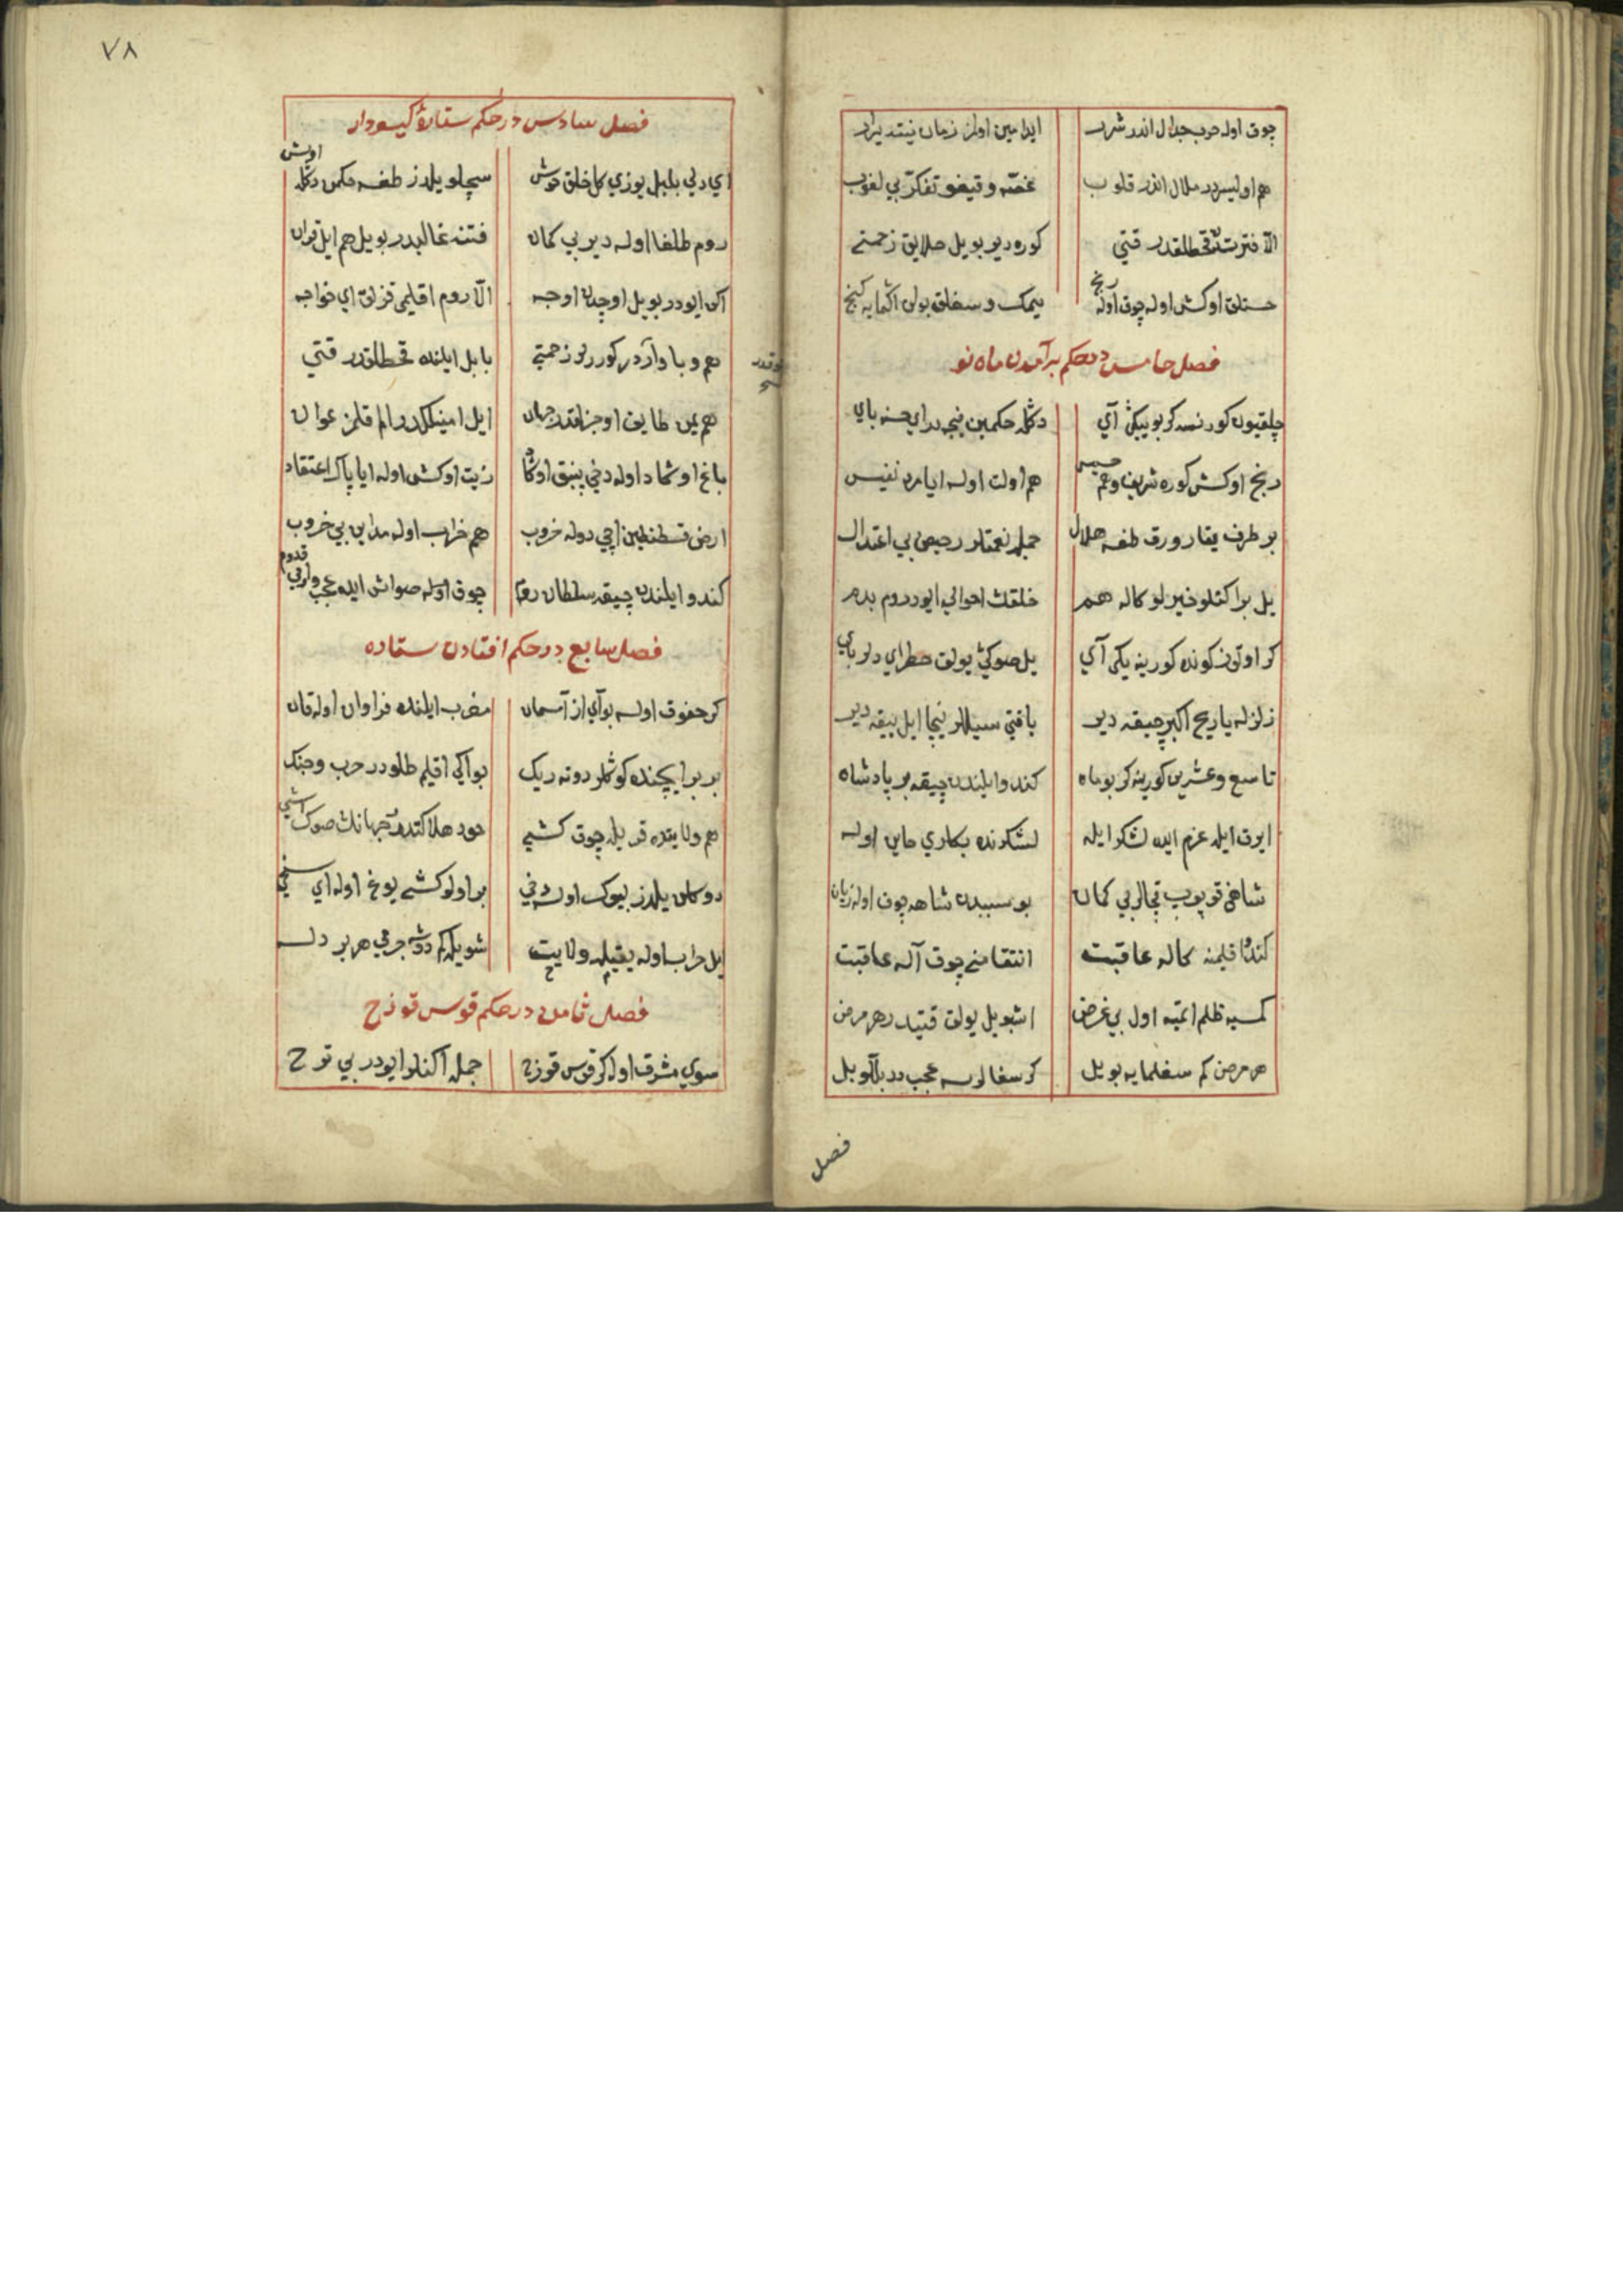 چوق اوله حرب جدال اندر شرر ایدامین اولز زمان نیتدیرلر
هم اولیسردر ملال اندر قلوب غصّه و قیغو تفکّر بی لغوب
الّا فترتدڭ قحطلقدر قتی کوردیر بو ییل خلایق زحمتی
خستلق اوکش اوله چوق اوله رنج ییمک و سغلق بولن اکمایه کنج
فصل خامس در حکم برآمدن ماه نو
کورنسه کر بو ییکی آی دکله حکمین نیجه در ای حسنه بای
رنج اوکش کوره شریف و هم خسیس هم اولت اوله ایا مرد نفیس
بر طرف یقار ورق طغسه هلال جمله نعمتلر رخیص بی اعتدال
ییل بر اکنلو خیرلو کاله هم خلقڭ احوالی ایودر روم بدم
کر اوتوز کونده کورینه ییکی آی ییل صوڭی بولق خطر ای دلربای
زلزله یا ریح اکبر چیقه دیر یا قتی سیللر نیجا ایل ییقه دیر
تاسع و عشرین کورینه کر بو ماه کندو ایلندن چیقه بر پادشاه
ایرق ایله عزم ایده لشکر ایله لشکرنده بکلری خاین اوله
شاهی قویوب قچالر بی کمان بو سببدن شاهه چوق اوله زیان
کندو اقلیمنه کاله عاقبت انتقامنی چوق آله عاقبت
کمسیه ظلم اتمیه اول بی غرض اشبو ییل بولق قتیدر هر مرض
هر مرض کم سغلمایه بو ییل کر سغالورسه عجبدر بلکو بیل
فصل
٧٨
فصل سادس در حکم ستارهٔ کیسودار
ای دلی بلبل یوزی کل خلق خوش سچلو یلدز طغسه حکمن دکله اویش
روم طلغا اوله دیر بی کمان فتنه غالبدر بو ییل هم ایل قران
اکن ایودر بو ییل اوچدن اوجه الّا روم اقلیمی قزلق ای خواجه
هم وبا واردر کورر لر زحمتی بابل ایلنده قحطلقدر قتی
هم یمن طایف اوجزلقدر جهان ایل امینلکدر رام قلمز عوان
باغ اوشاد اوله دخی پنبق اوکا زیت اوکش اوله ایا پاک اعتقاد
ارض قسطنطین ایچی دوله خروب هم خراب اوله مداین بی خروب
کندو ایلندن چیقه سلطان روم چوق اوله صواش ایده عجب وارمی قدوم
فصل سابع در حکم افتادن ستاره
کر حفوق اوله بو آی از آسمان مغرب ایلنده فراوان اوله قان
بربر ایچنده کوکللر دوته ریک بو ایکی اقلیم طلودر حرب و جنک
هم ولایتده قریله چوق کشی خود هلاکتدر جهانڭ صوڭ اشی
دوکلن یلدز بیوک اولسه دخی بر اولو کشی یوغ اوله ای سخی
ییل خراب اوله یقیله ولایت شویله کم دوشه جرمی هر بر
فصل ثامن در حکم قوس قوزح
سوی مشرق اوله کر قوس قوزح جمله اکنلر ایودر بی توح